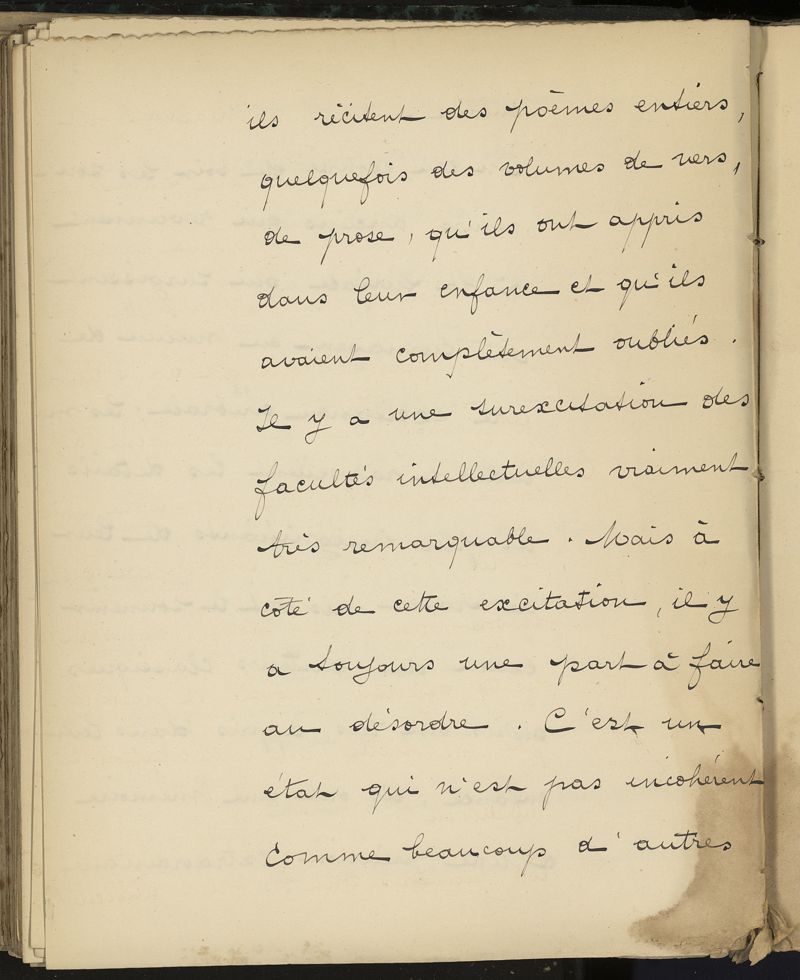 ils récitent des poèmes entiers,
quelquefois des volumes de vers,
de prose, qu'ils ont appris
dans leur enfance et qu'ils
avaient complètement oubliés.
Il y a une surexcitation des
facultés intellectuelles vraiment
très remarquable. Mais à
côté de cette excitation, il y
a toujours une part à faire
au désordre. C'est un
état qui n'est pas incohérent
comme beaucoup d'autres